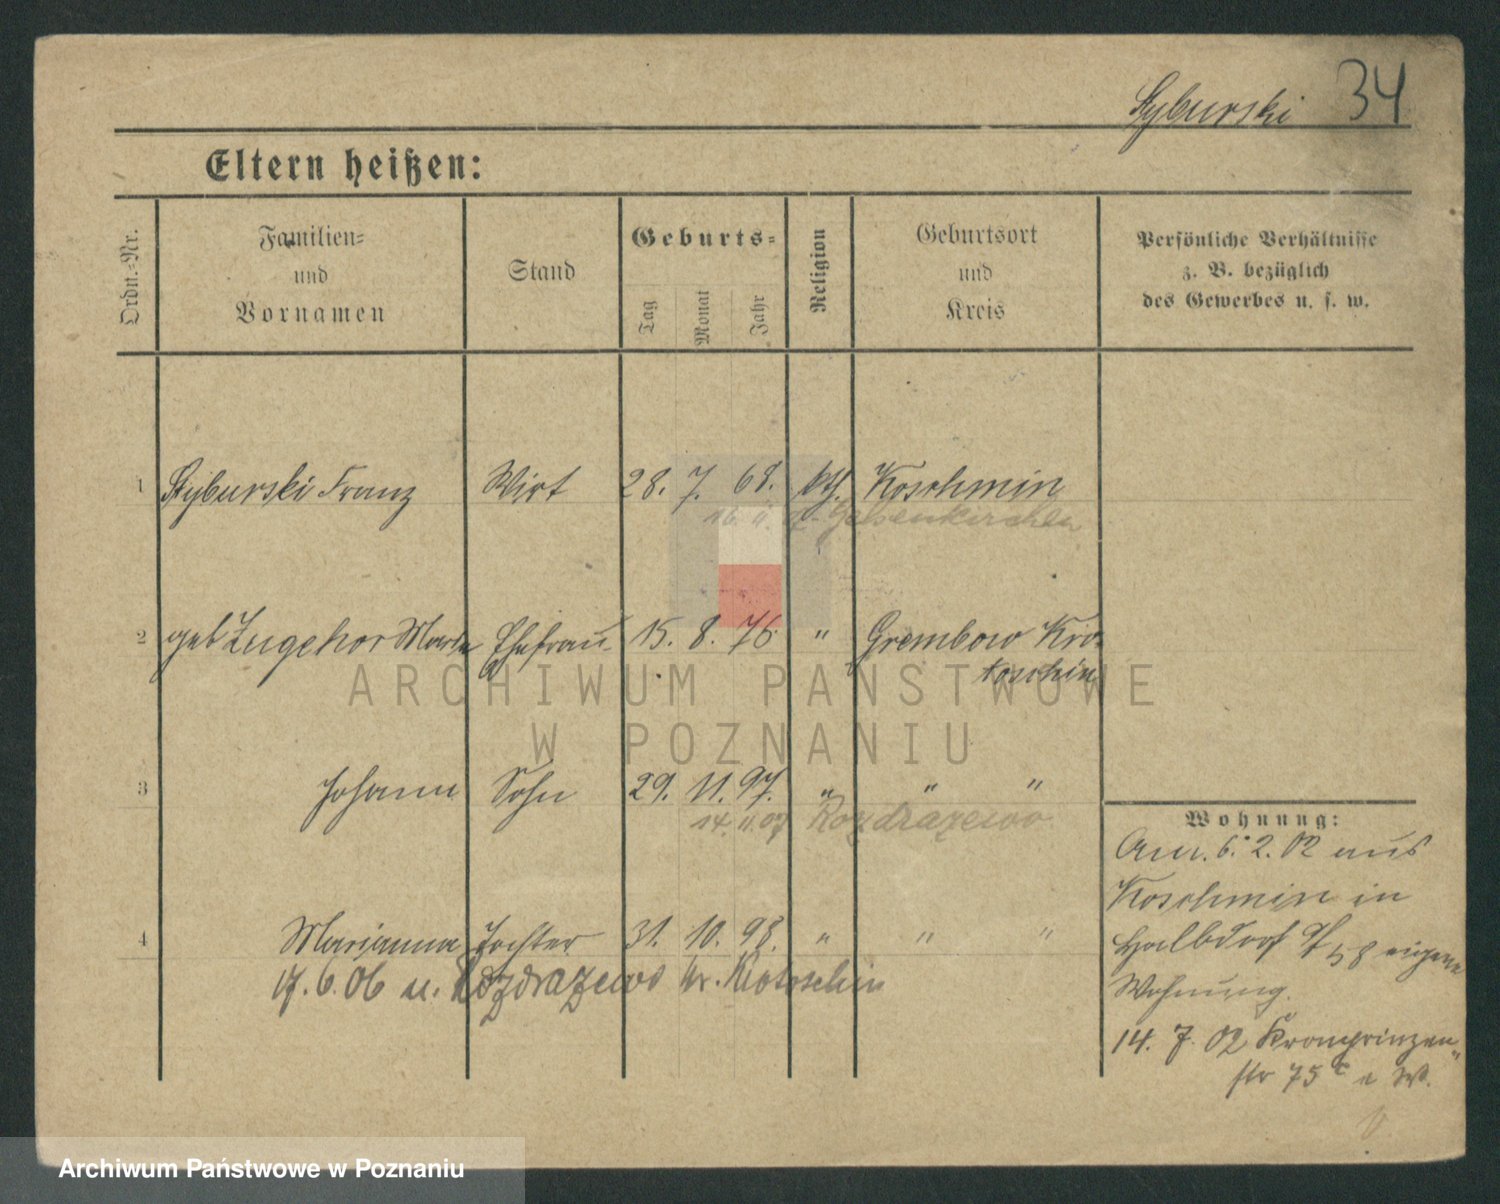 Syburski 34
Eltern heißen:
Ordn.-Nr. Familien- und Vornamen Stand Geburts- Tag Monat Jahr Religion Geburtsort und Kreis Persönliche Verhältnisse z. B. bezüglich des Gewerbes u. s. w.
1 Syburski Franz Wirt 28. 7. 68. kth. Koschmin
Gelsenkirchen
2 geb Zugehor Marie Ehefrau 15. 8. 76 " Grembow Kro-
toschin
ARCHIWUM PAŃSTWOWE
W POZNANIU
3 Johann Sohn 29. 11. 97. " " "
14. 11. 07 Rozdrazewo
Wohnung:
4 Marianna Tochter 31. 10. 98. " " "
17. 6. 06 n. Rozdrazewo Kr. Krotoschin
Anm. 6. 2. 02 aus
Koschmin in
Halbdorf 58 eigene
Wohnung.
14. 7. 02 Kronprinzen-
str 75c e W.
Archiwum Państwowe w Poznaniu